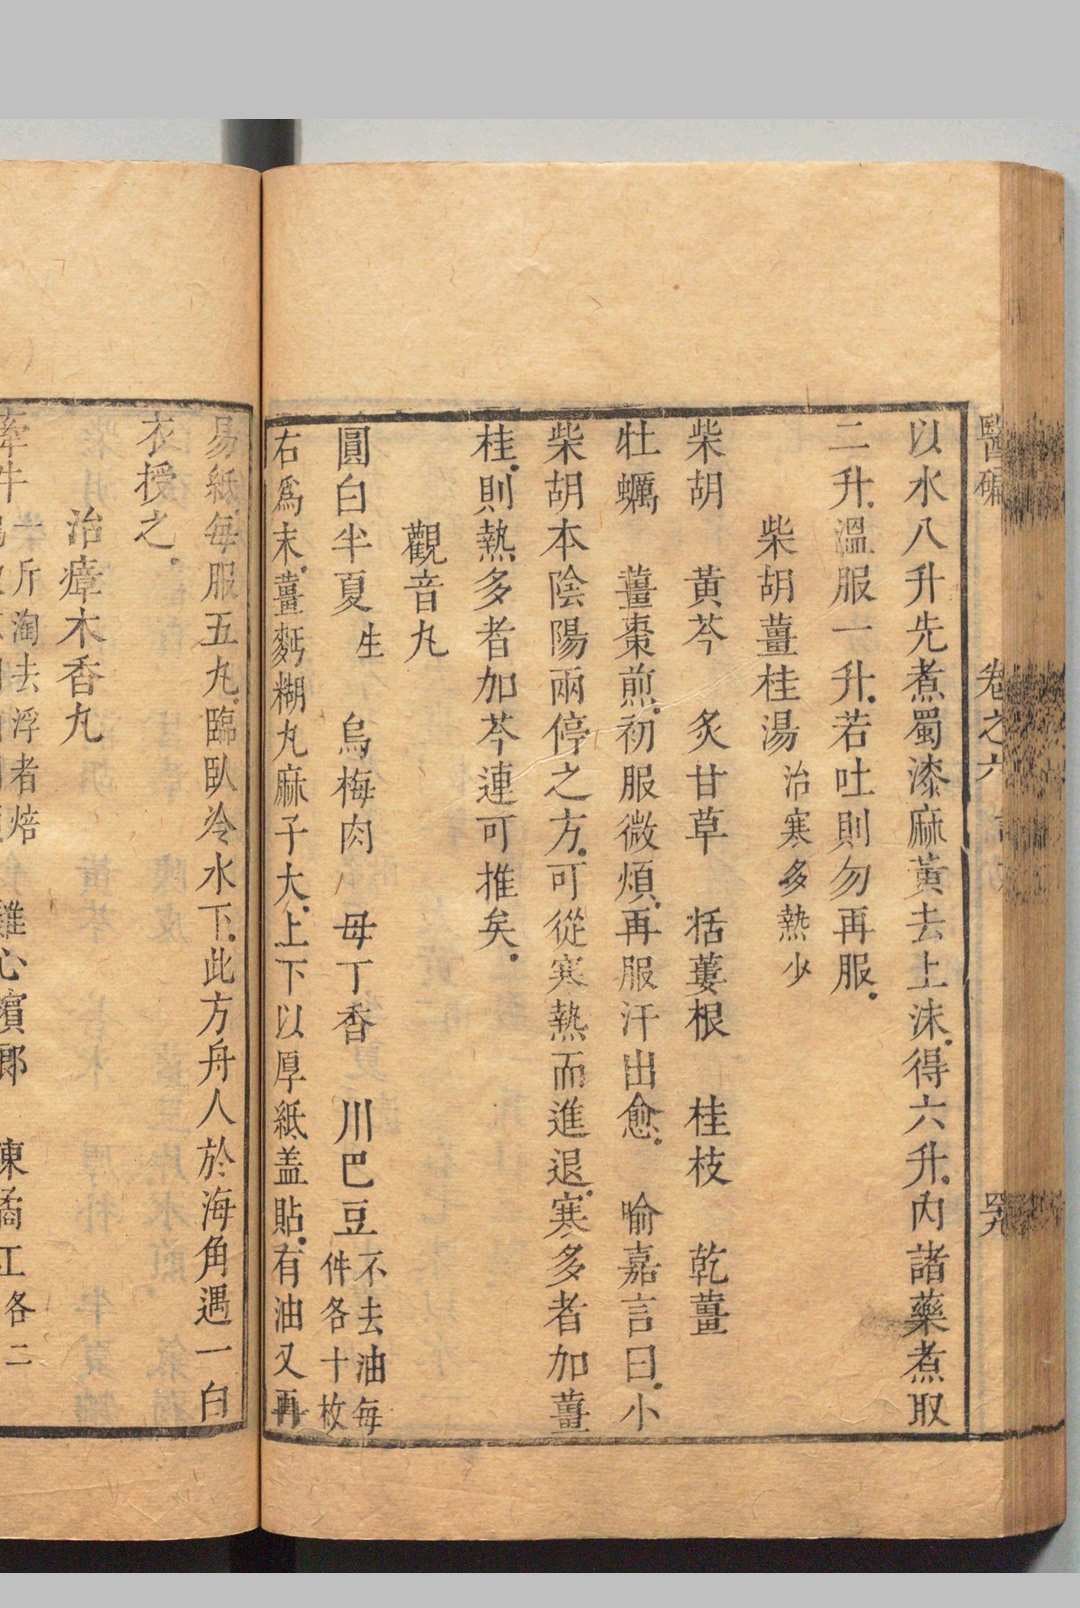 醫碥　卷之六
以水八升先煮蜀漆麻黃去上沫得六升內諸藥煮取
二升溫服一升若吐則勿再服
柴胡薑桂湯　治寒多熱少
柴胡　黃芩　炙甘草　栝蔞根　桂枝　乾薑
牡蠣　薑棗煎初服微煩再服汗出愈　喻嘉言曰小
柴胡本陰陽兩停之方可從寒熱而進退寒多者加薑
桂則熱多者加芩連可推矣
觀音丸
圓白半夏生　烏梅肉　母丁香　川巴豆不去油每件各十枚
右爲末薑麪糊丸麻子大上下以厚紙盖貼有油又再
易紙每服五丸臨臥冷水下此方舟人於海角遇一白
衣授之
治瘴木香丸
牽牛一斤淘去浮者焙　雞心檳榔　陳橘紅各二